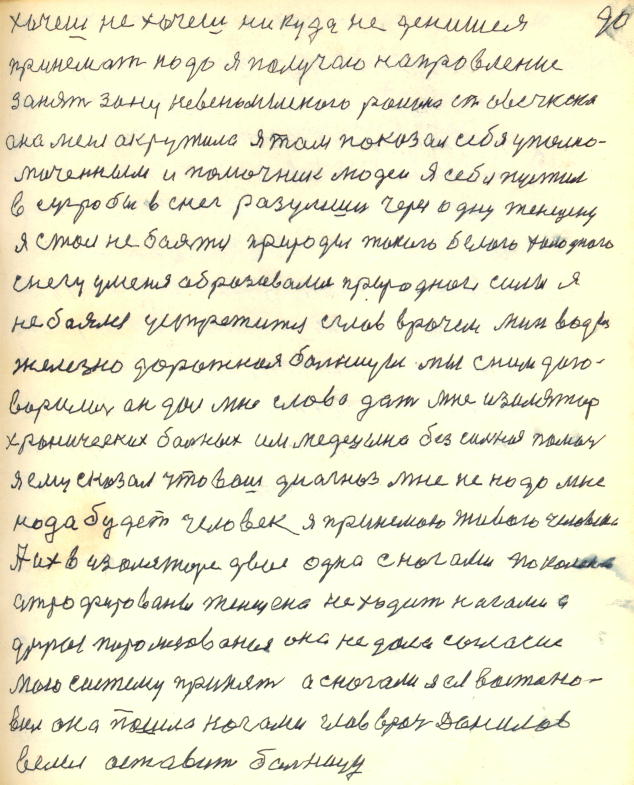 хочеш не хочеш никуда не денишся 90
принемат надо я получаю направление
занят зону невеномысского раиона ст овечкска
ана меня акружила я там показал себя уполно-
моченным и помочник людеи я себя пустил
в сугробы в снег разувшис через одну женщену
я стал не баятся природы такого белого холодного
снегу уменя абразавалис природнои силы я
не баялся устретится сглав врачем мин воды
железно дорожная балницы мы сним дого-
ворилис ан дал мне слово дат мне изалятор
хронических балных им медецына без силная помоч
я ему сказал что ваш диагноз мне не надо мне
нада будет человек я принемаю живого человека
А их в изаляторе двое одна с ногами поколена
атрофированы женщена не ходит ногами а
другая парализованая она не дала согласие
мою систему принят а сногами я ей востано-
вил она пошла ногами глав врач Данилов
велел оставит балницу